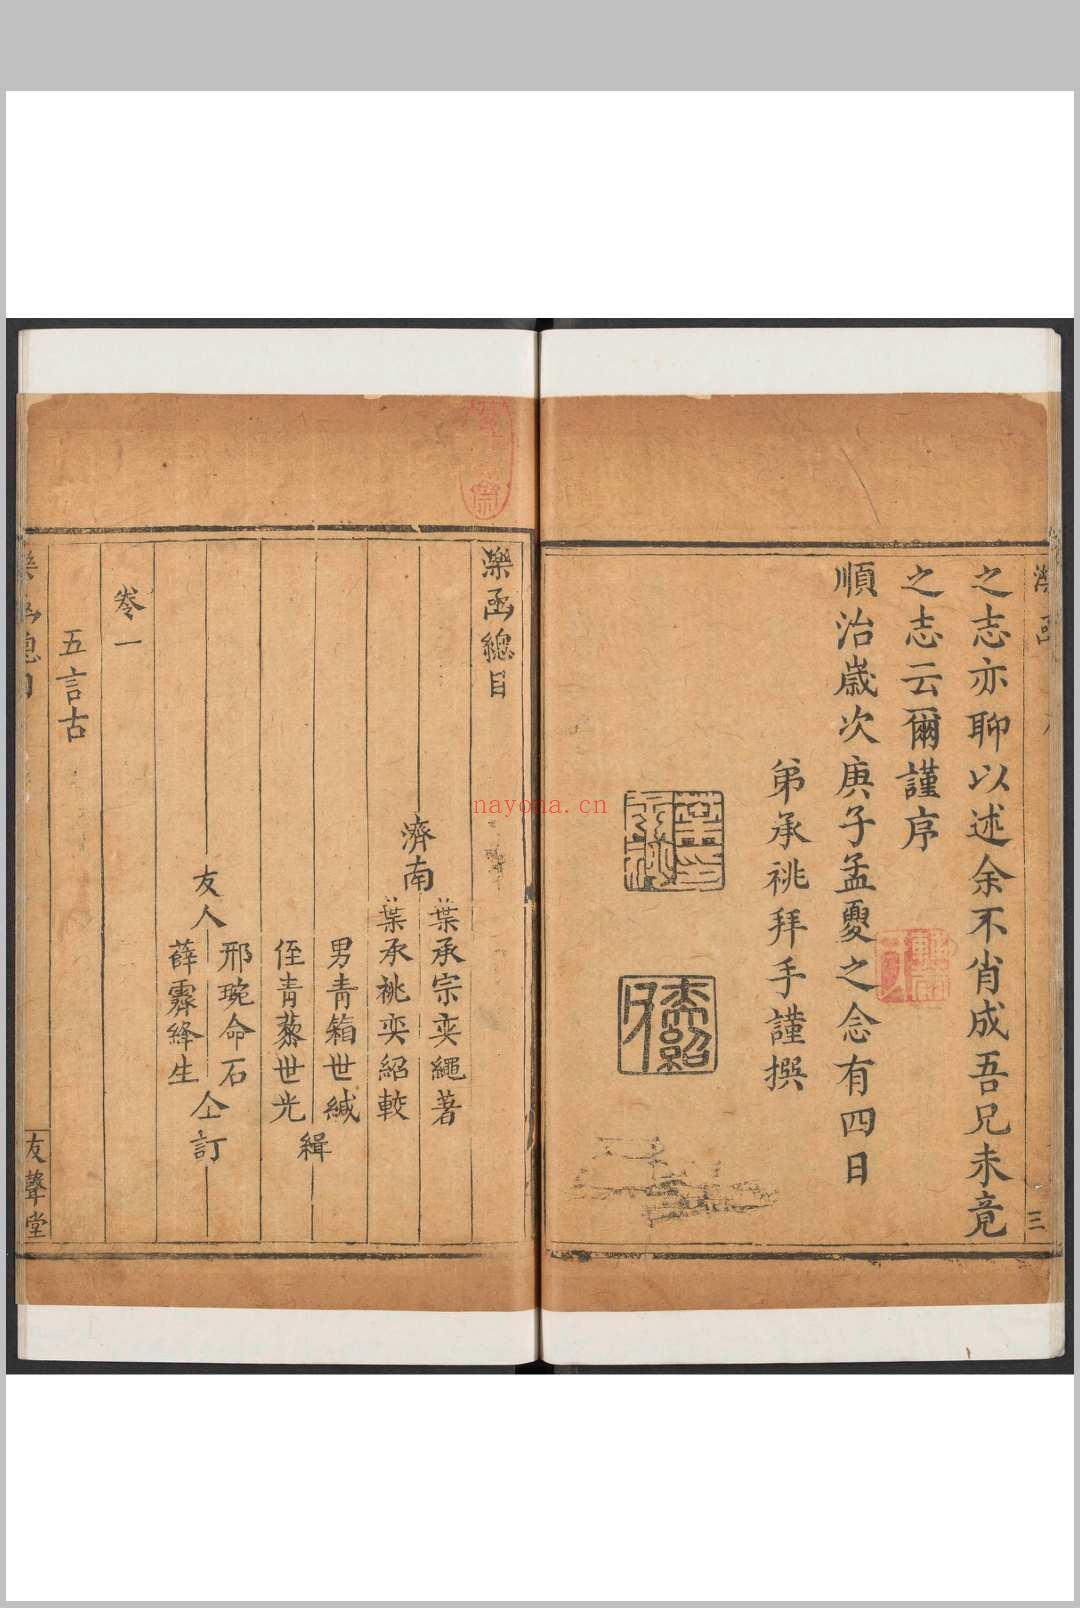 之志亦聊以述余不肖成吾兄未竟
之志云爾謹序
順治歲次庚子孟夏之念有四日
弟承祧拜手謹撰
三
濼函總目
濟南
葉承宗奕繩著
葉承祧奕紹較
男青箱世緘
侄青藜世光
緝
友人
邢琬命石
薛霽絳生
仝訂
卷一
五言古
友聲堂
nayona.cn